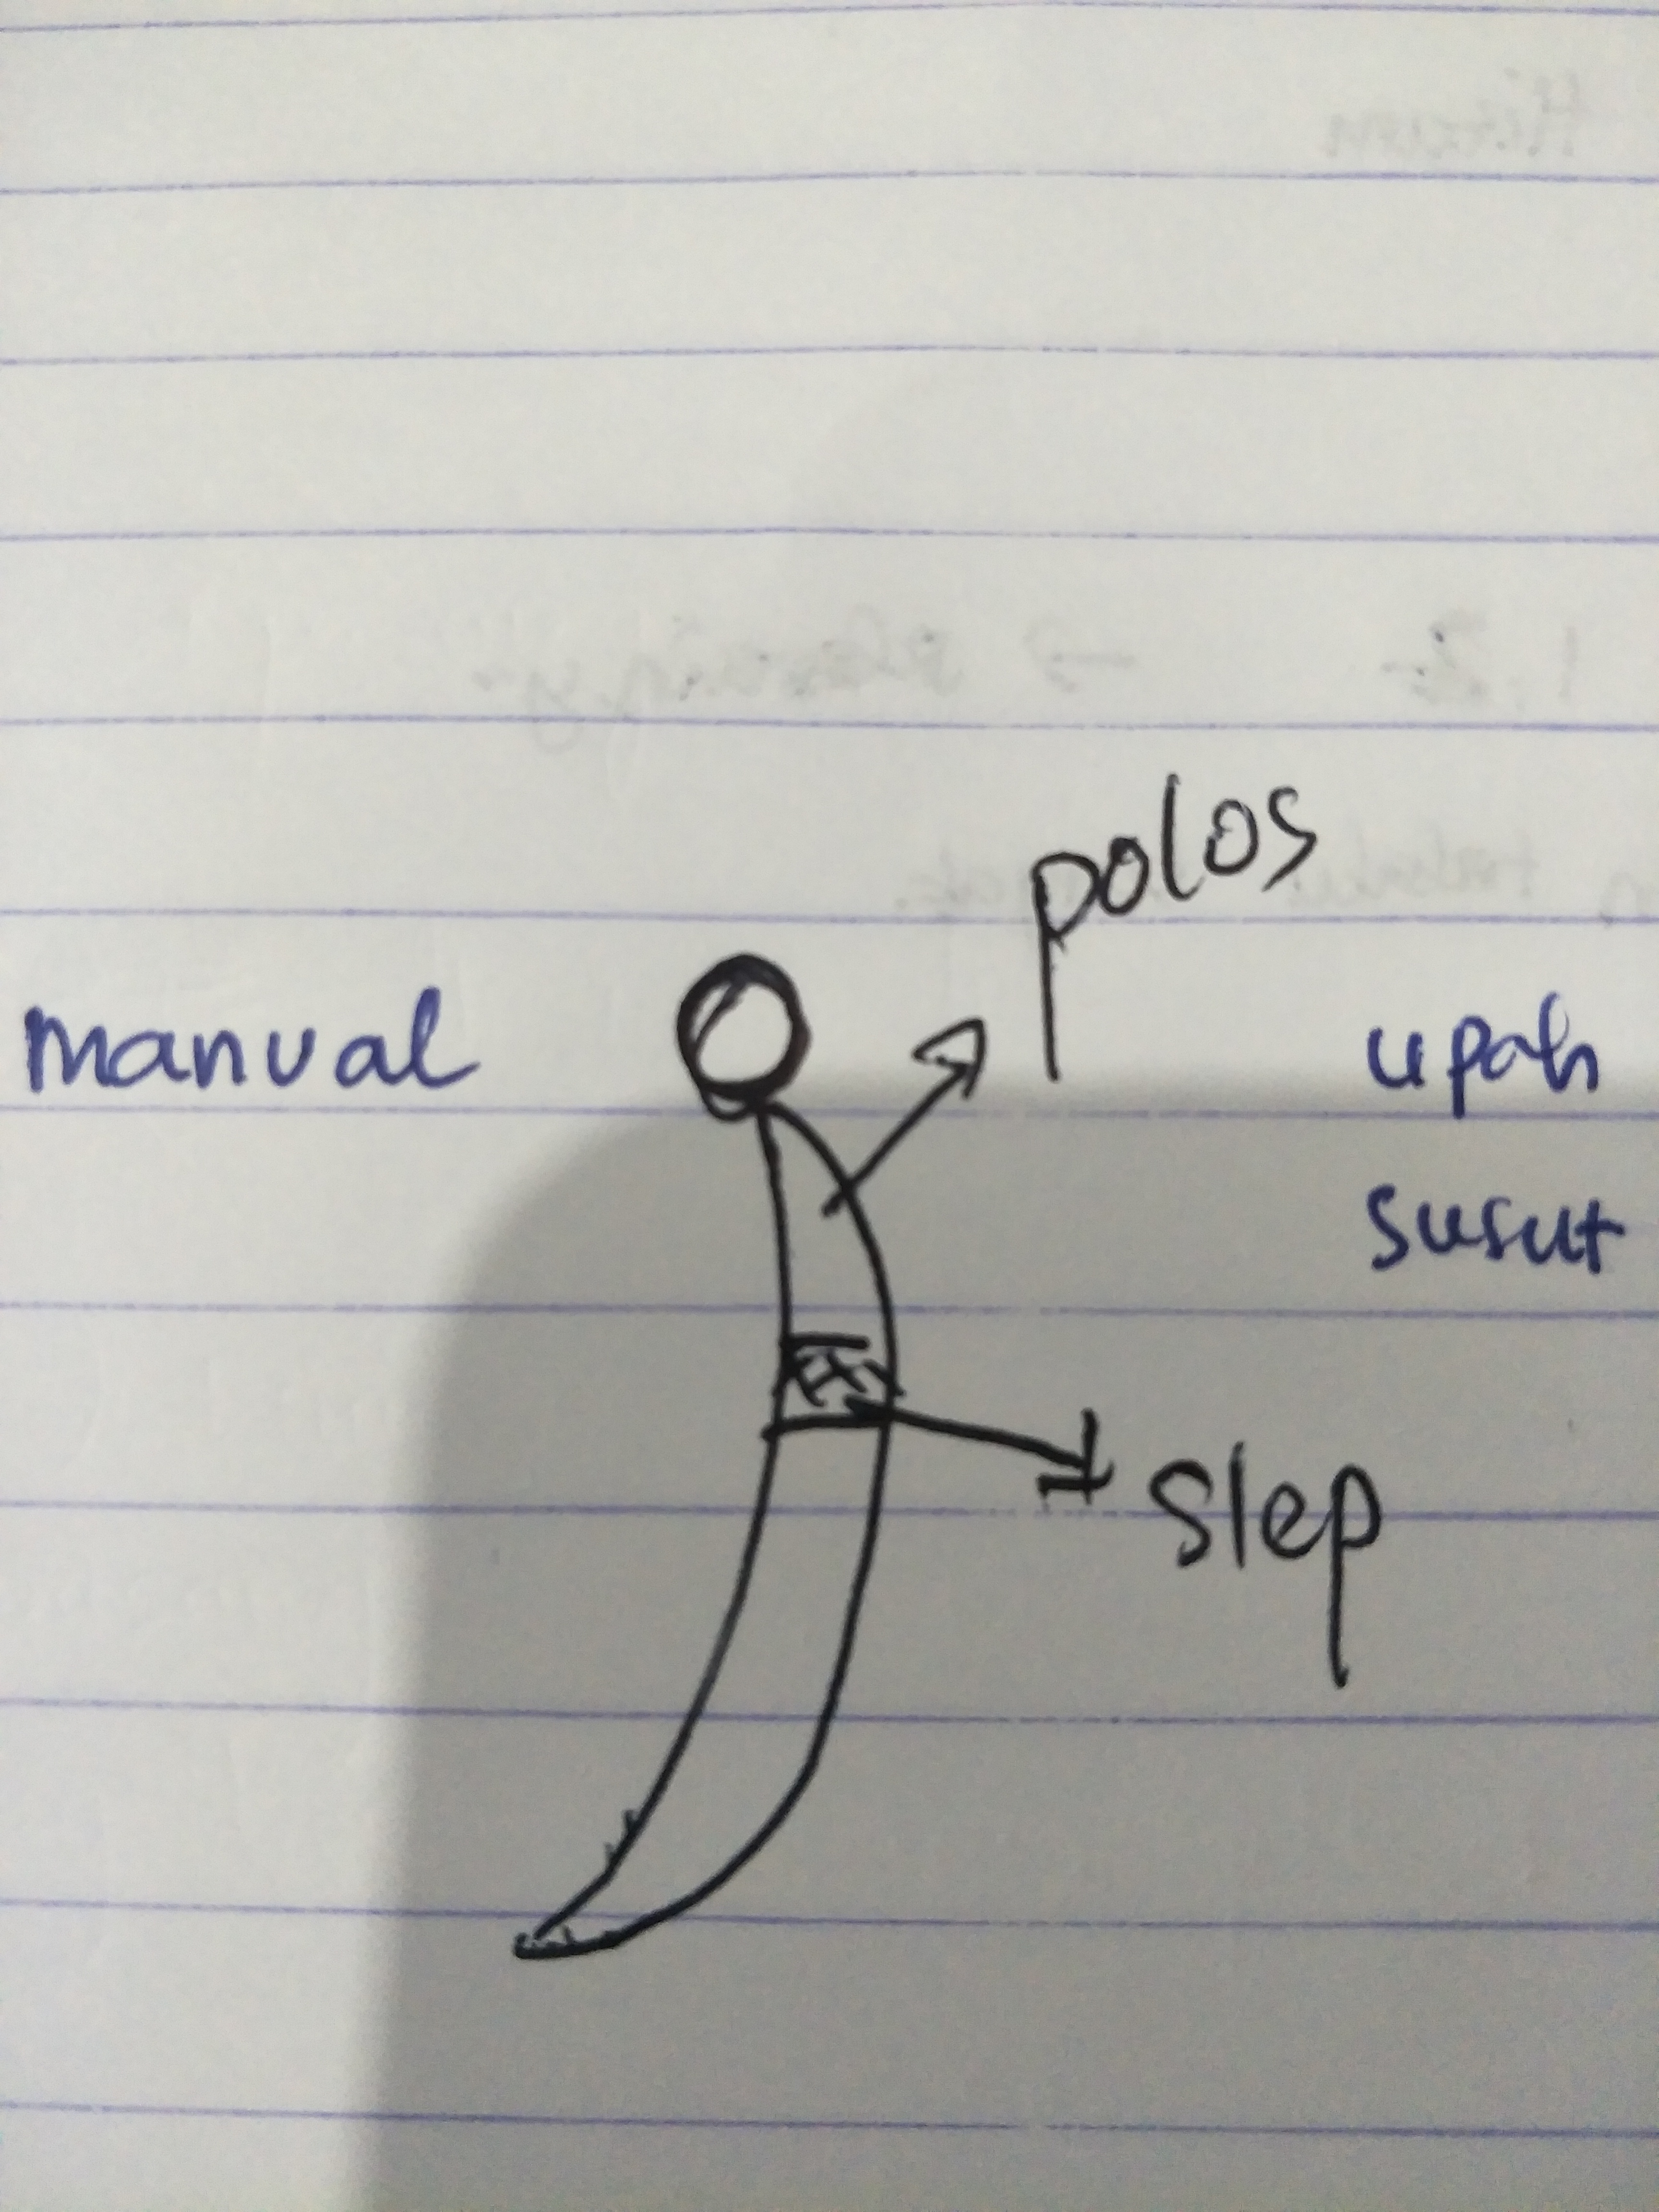 polos
manual
upah
susut
slep